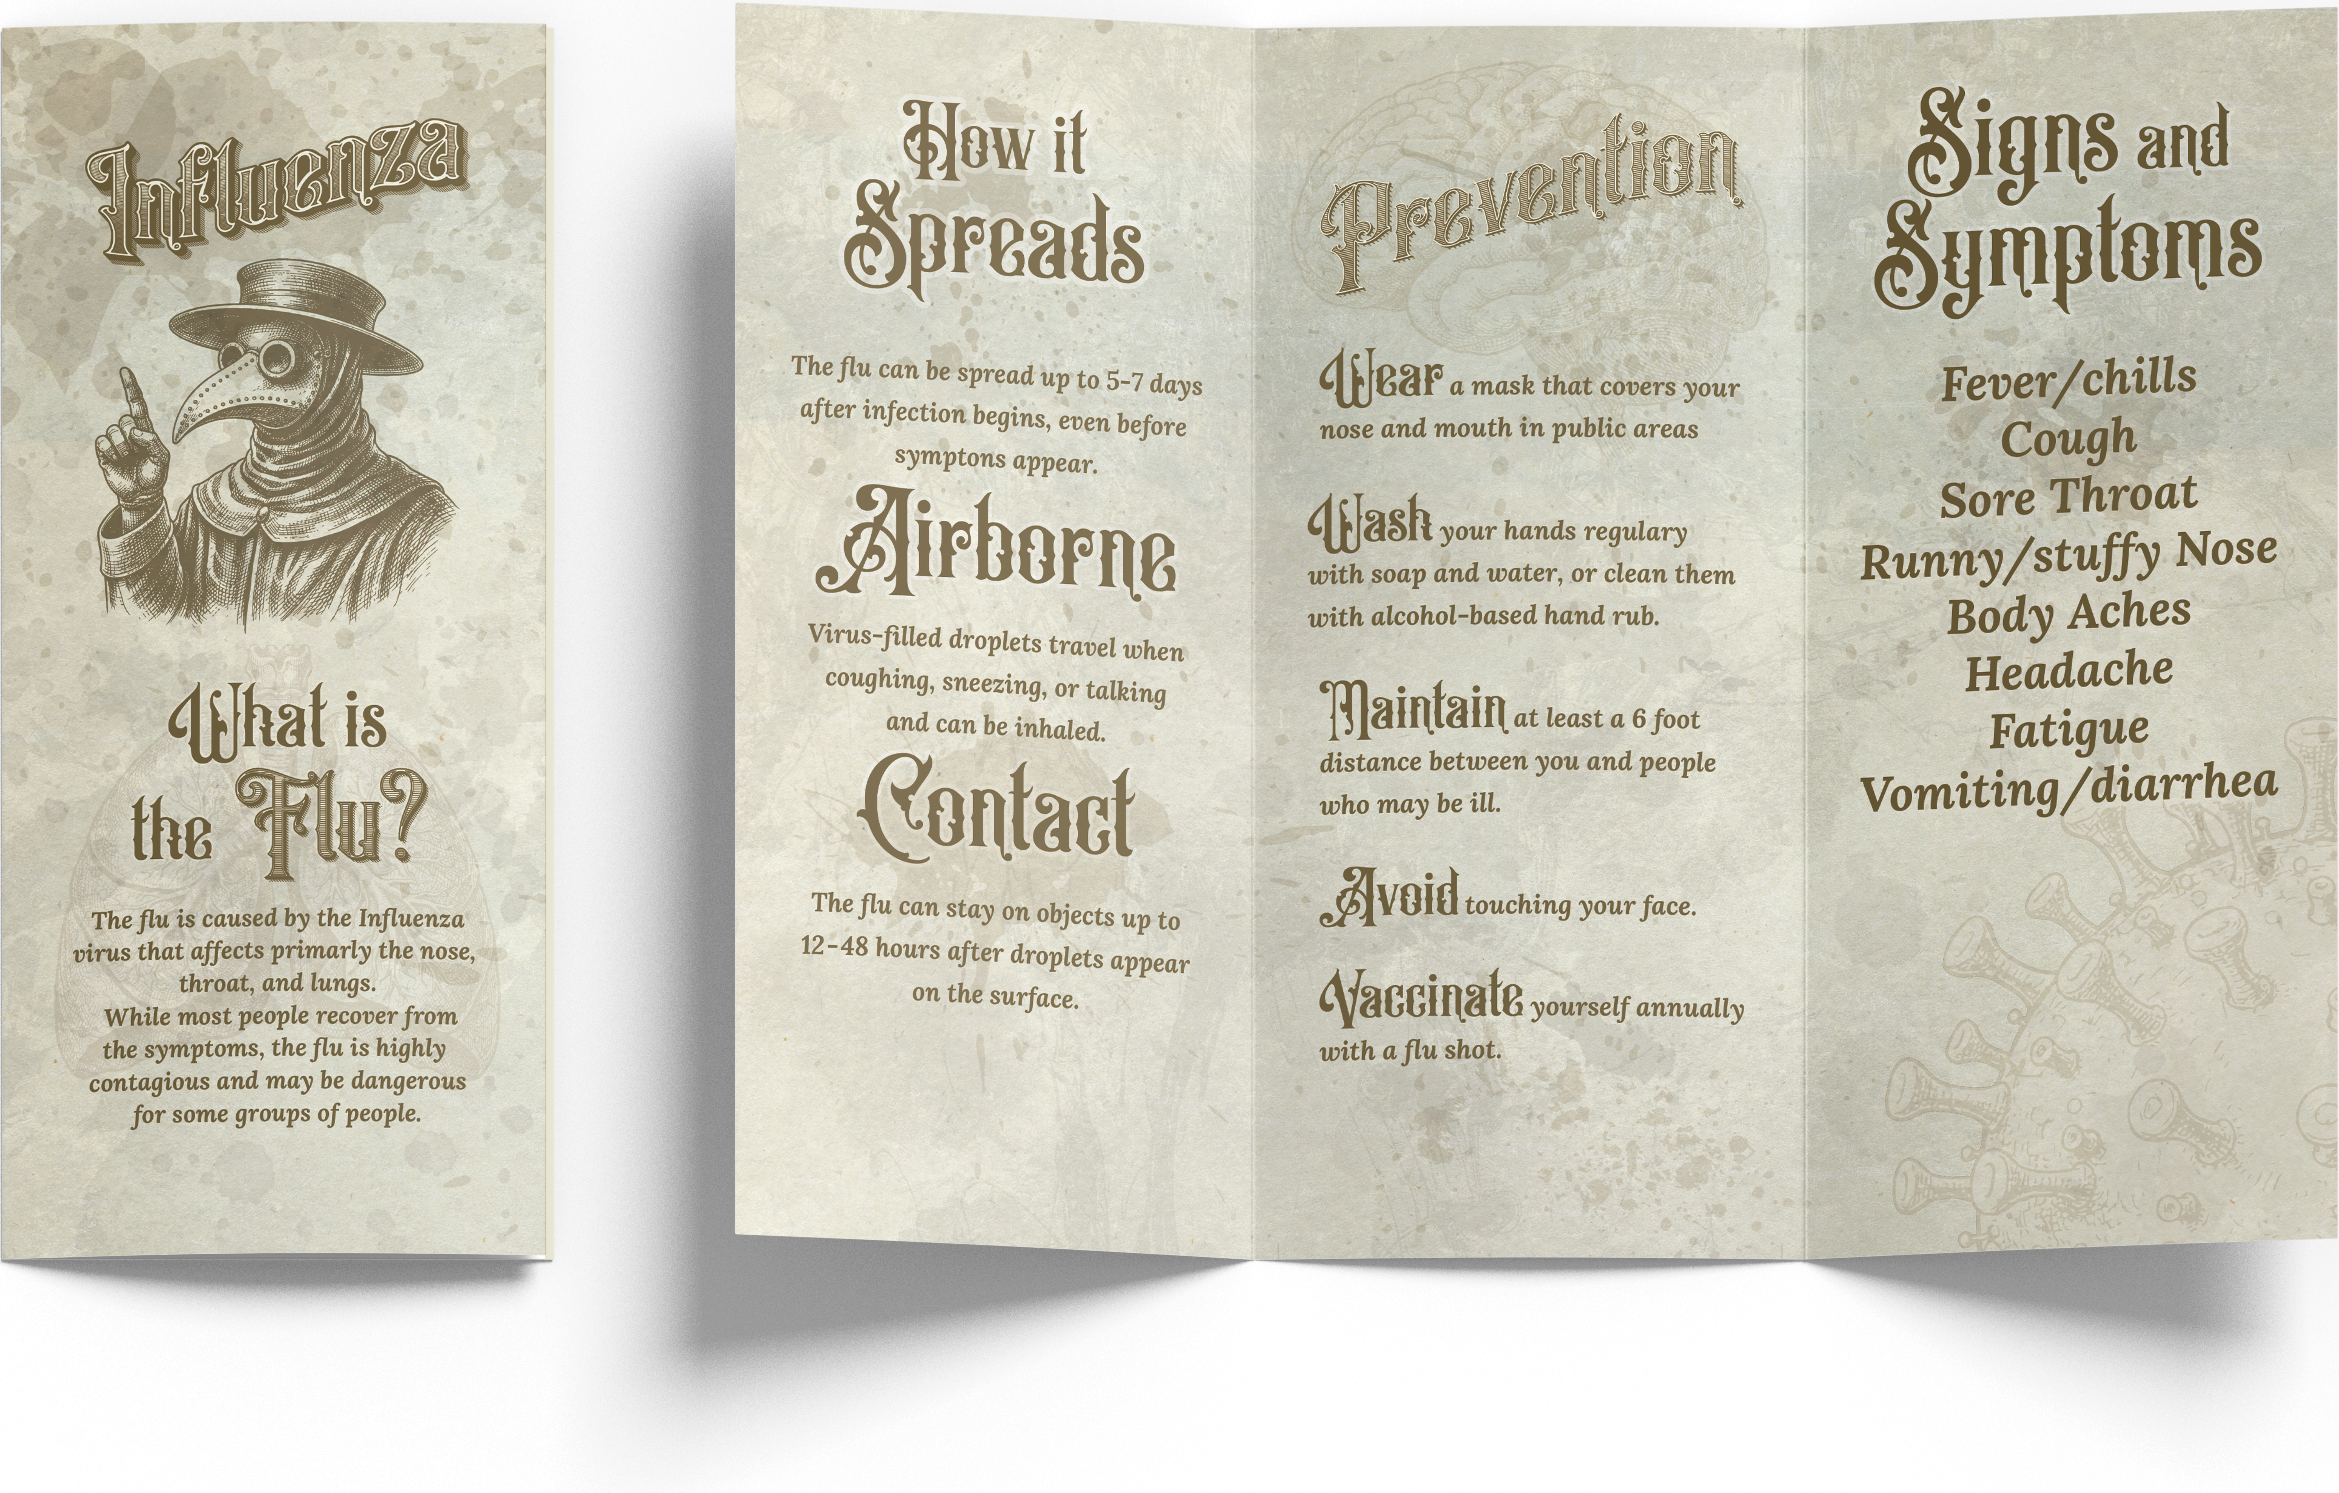 Influenza
What is
the Flu?
The flu is caused by the Influenza
virus that affects primarly the nose,
throat, and lungs.
While most people recover from
the symptoms, the flu is highly
contagious and may be dangerous
for some groups of people.
How it
Spreads
The flu can be spread up to 5-7 days
after infection begins, even before
symptons appear.
Airborne
Virus-filled droplets travel when
coughing, sneezing, or talking
and can be inhaled.
Contact
The flu can stay on objects up to
12-48 hours after droplets appear
on the surface.
Prevention
Wear a mask that covers your
nose and mouth in public areas
Wash your hands regulary
with soap and water, or clean them
with alcohol-based hand rub.
Maintain at least a 6 foot
distance between you and people
who may be ill.
Avoid touching your face.
Vaccinate yourself annually
with a flu shot.
Signs and
Symptoms
Fever/chills
Cough
Sore Throat
Runny/stuffy Nose
Body Aches
Headache
Fatigue
Vomiting/diarrhea